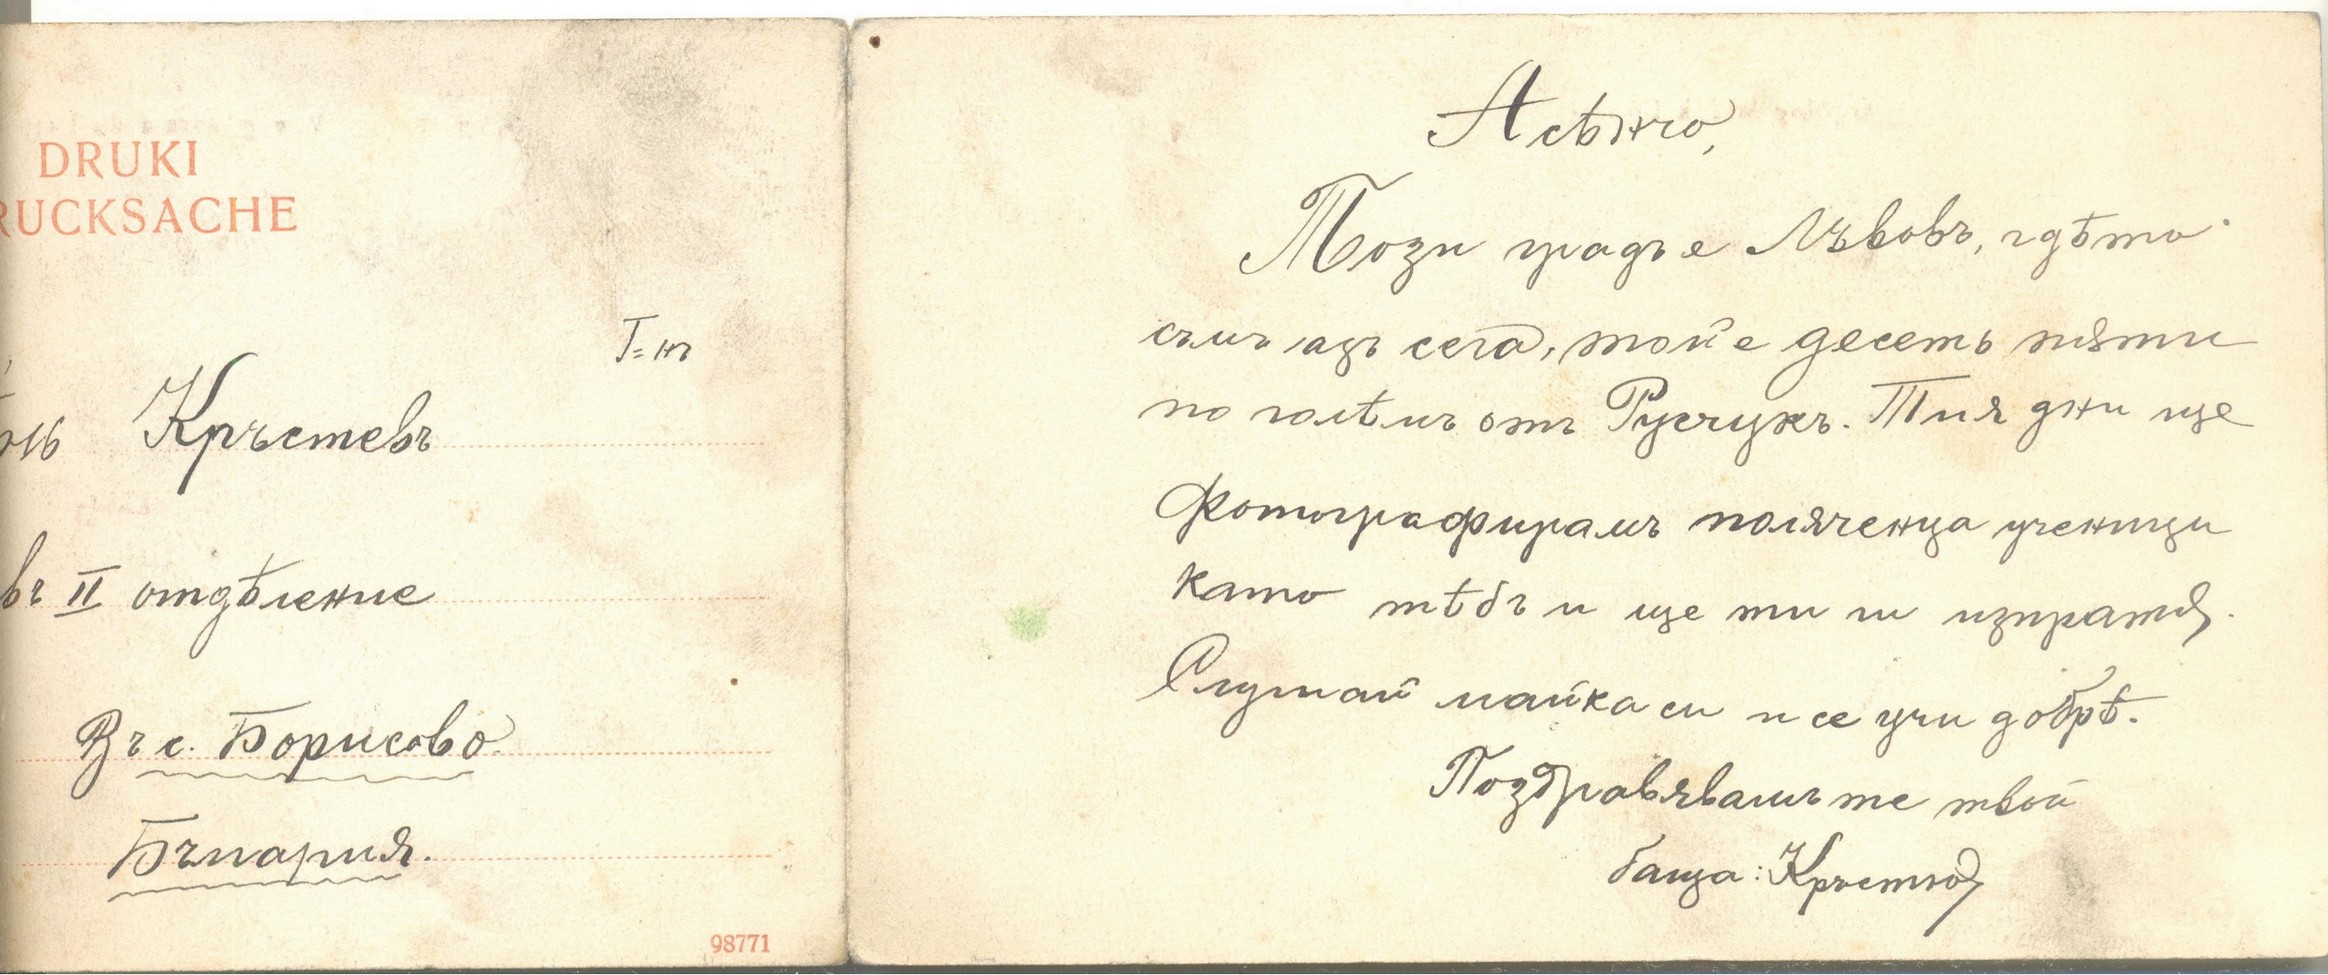 DRUKI
RUCKSACHE
Г=нъ
Кръстевъ
въ II отдѣление
Въ с. Борисово
България.
98771
Асѣнчо,
Този градъ е Лъвовъ, гдѣто
съмъ азъ сега, той е десеть пѫти
по голѣмъ отъ Русчукъ. Тия дни ще
фотографирамъ поляченца ученици
като тѣбъ и ще ти ги изпратѭ.
Слушай майка си и се учи добрѣ.
Поздравявамъ те твой
баща: Кръстю